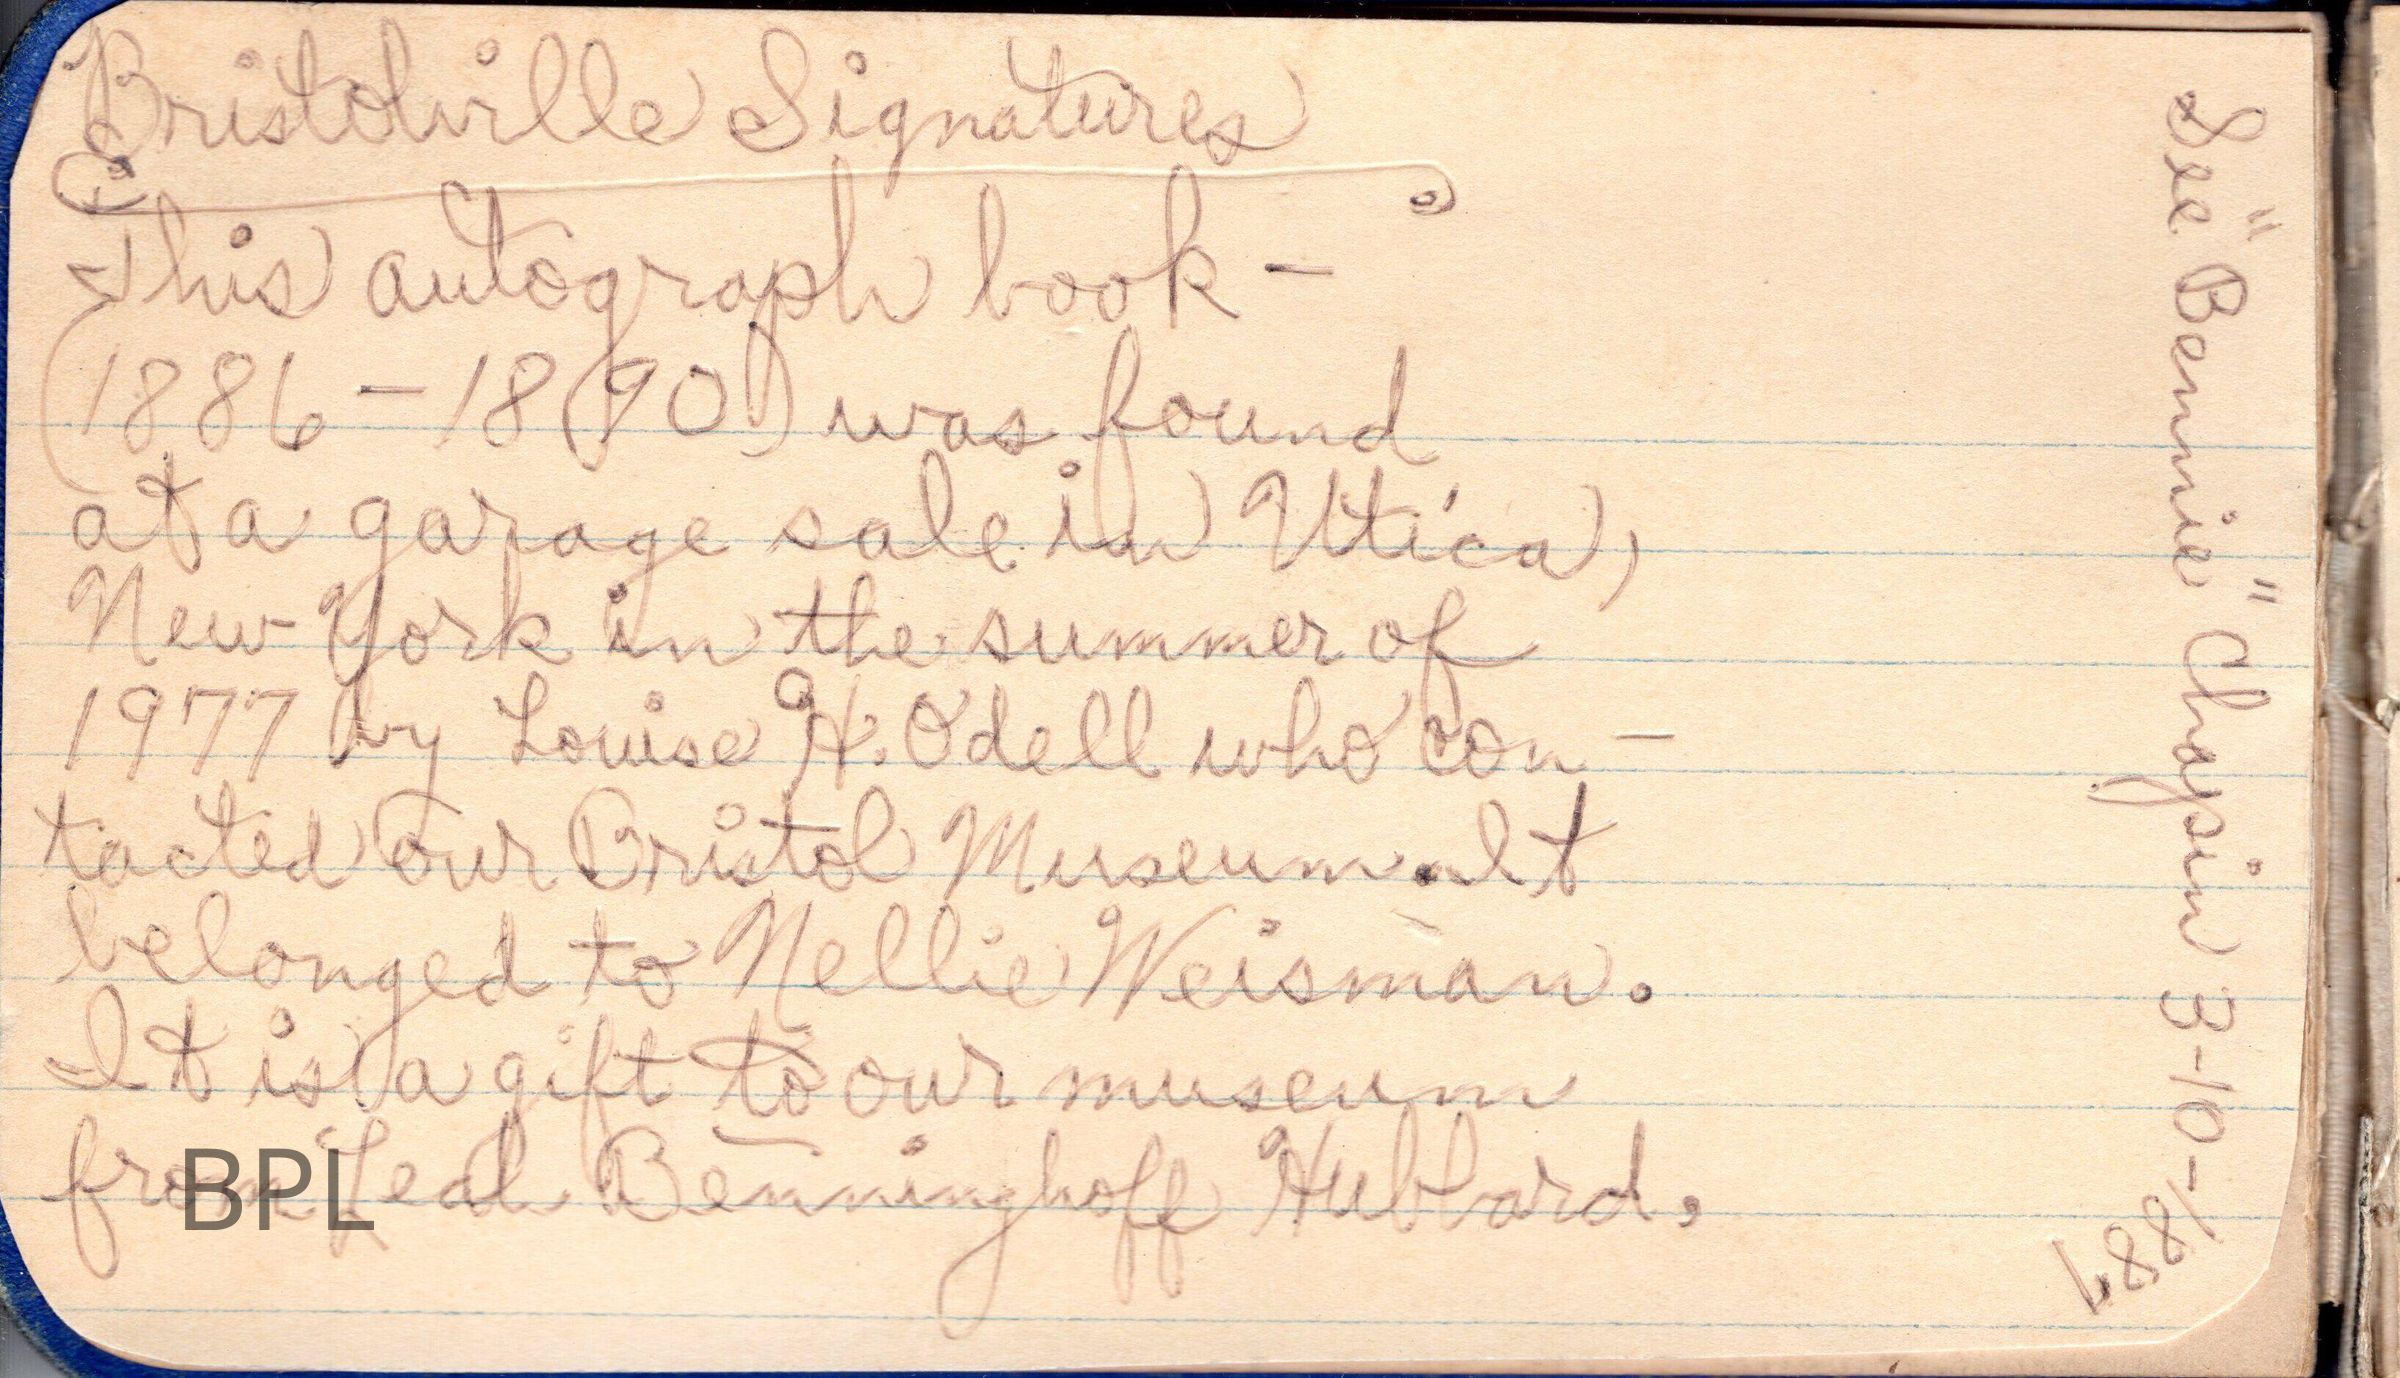 Bristolville Signatures
This autograph book -
(1886 - 1890) was found
at a garage sale in Utica,
New York in the summer of
1977 by Louise H. Odell who con-
tacted our Bristol Museum. It
belonged to Nellie Weisman.
It is a gift to our museum
from Leah Benninghoff Hubbard.
BPL
See "Bennie" Chapin 3-10-1887